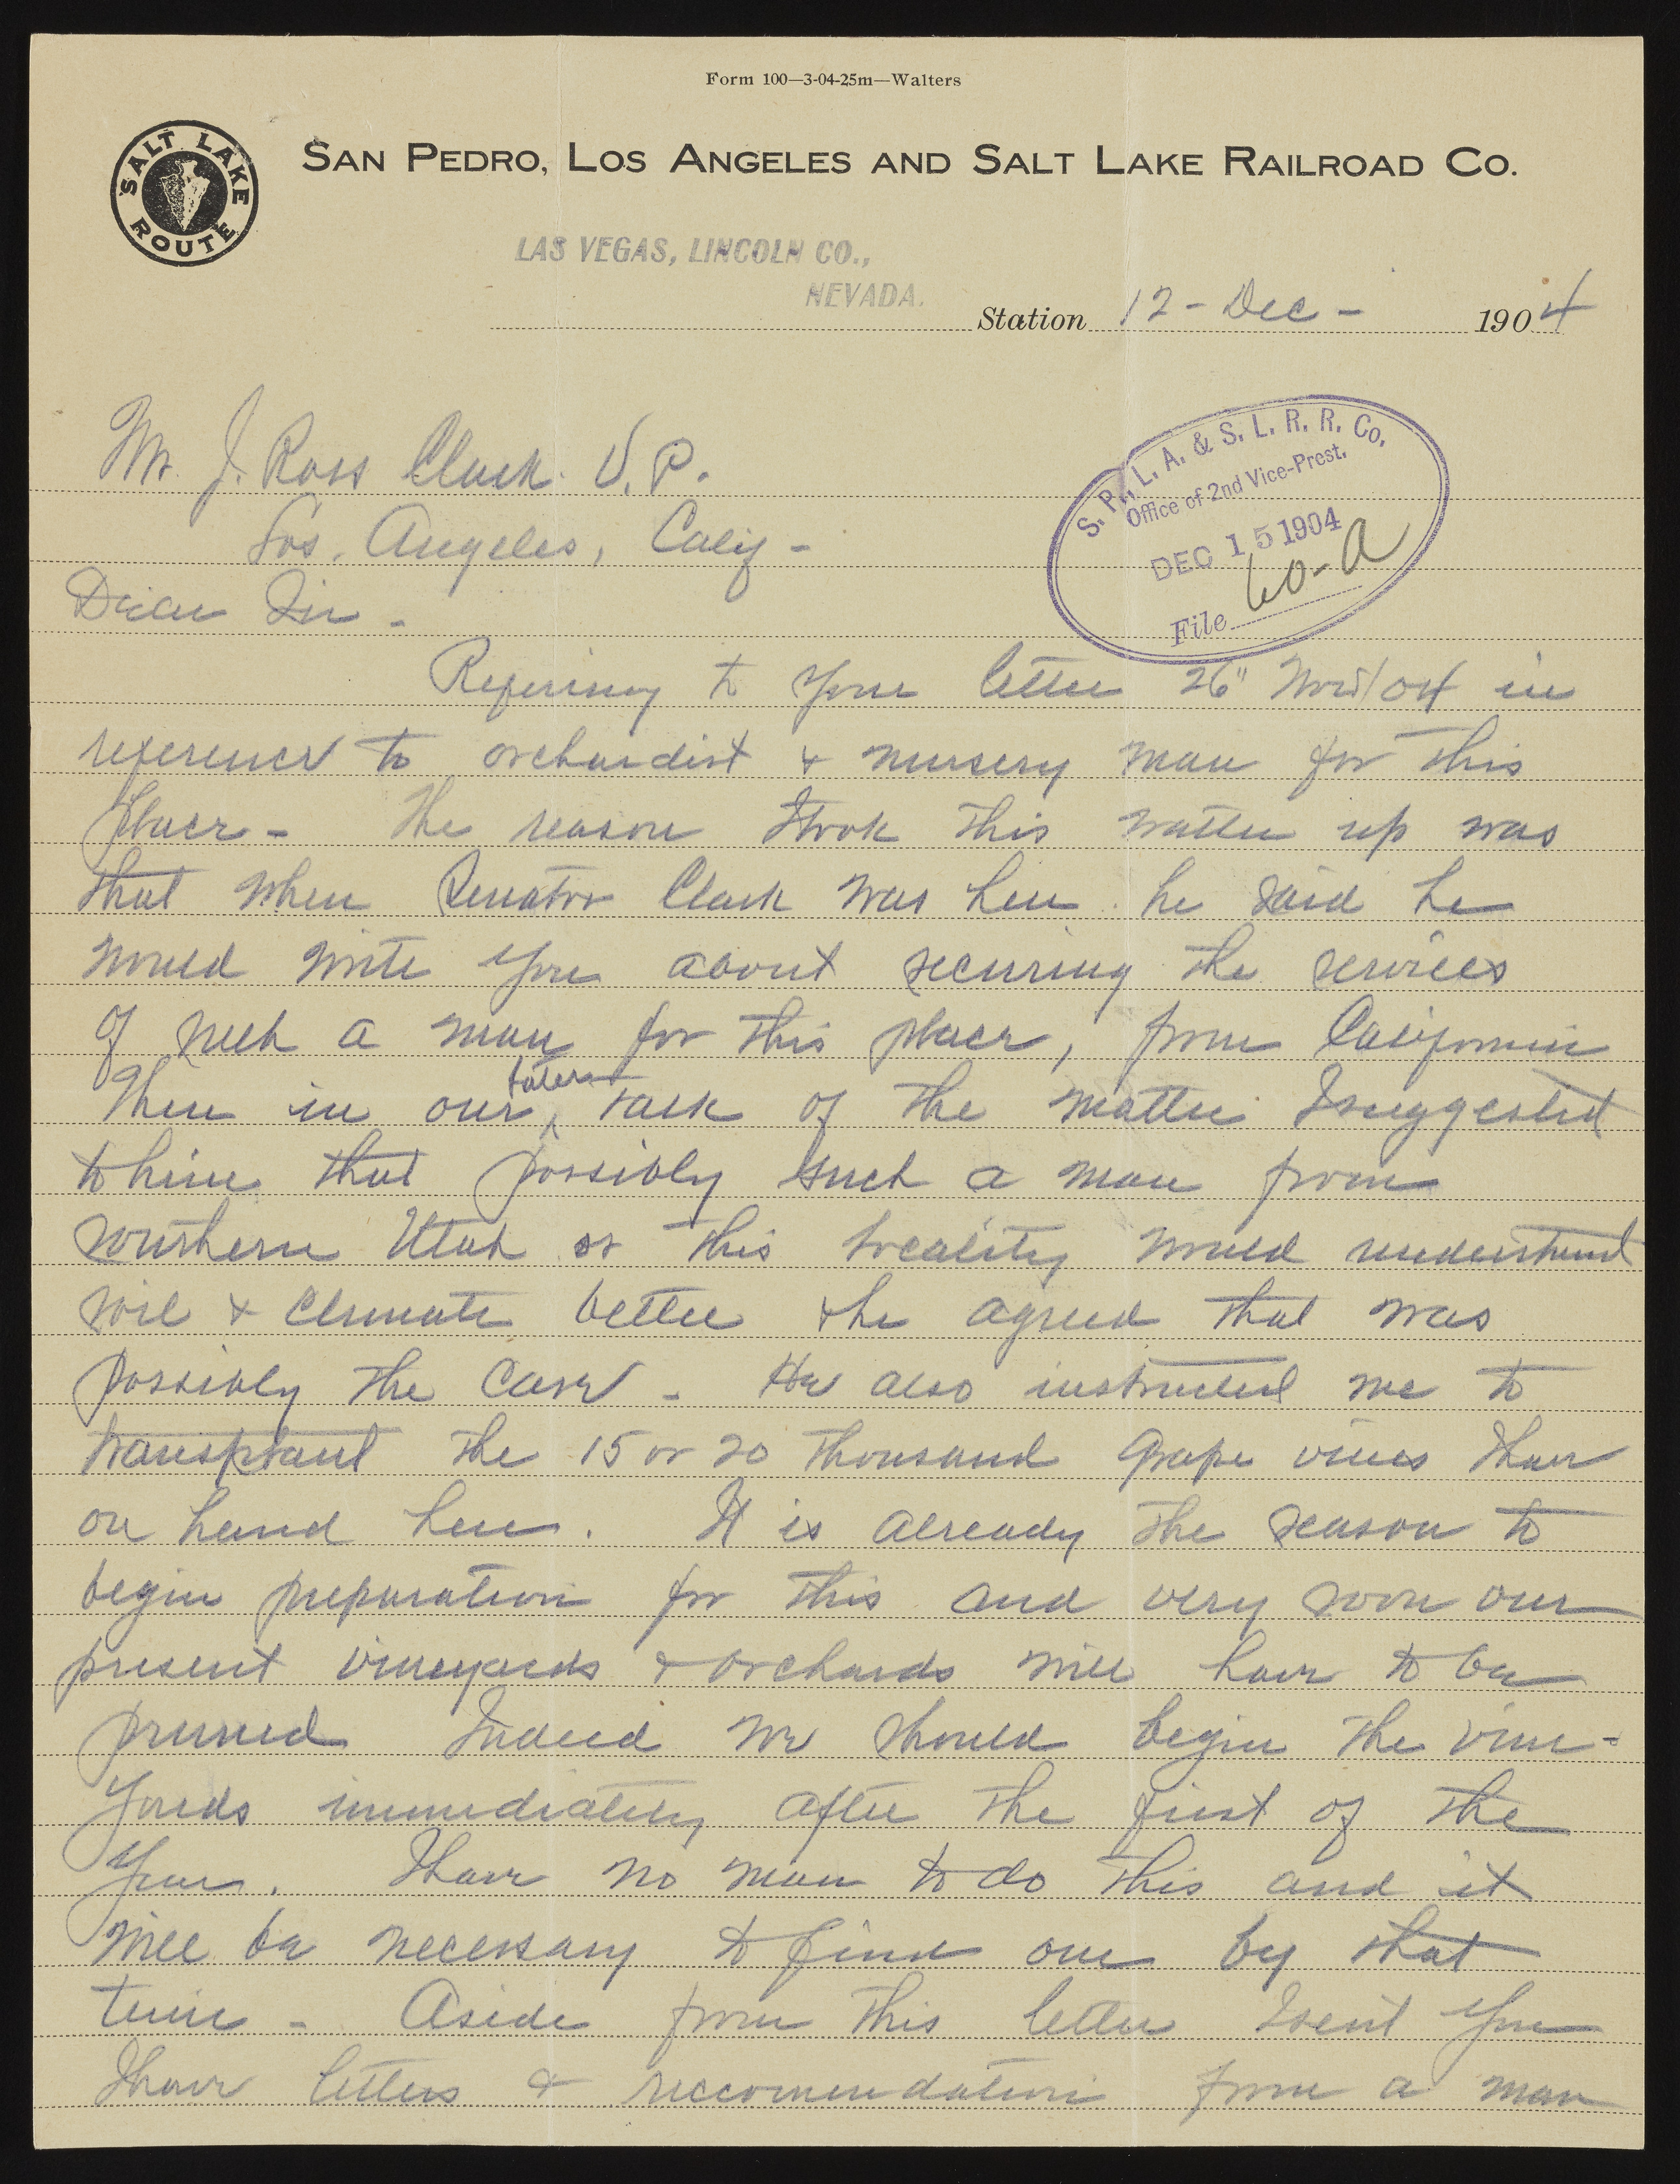 Form 100—3-04-25m—Walters
SALT LAKE ROUTE
SAN PEDRO, LOS ANGELES AND SALT LAKE RAILROAD CO.
LAS VEGAS, LINCOLN CO.,
NEVADA.
Station 12 - Dec - 1904
S. P., L. A. & S. L. R. R. Co.
Office of 2nd Vice-Prest.
DEC 15 1904
File 60-A
Mr. J. Ross Clark. V.P.
Los. Angeles, Calif -
Dear Sir -
Referring to your letter 26" Nov/04 in
reference to orchardist & nursery man for this
place - The reason I took this matter up was
that when Senator Clark was here he said he
would write you about securing the services
of such a man for this place, from California
Then in our later talk of the matter I suggested
to him that possibly such a man from
southern Utah or this locality would understand
soil & climate better & he agreed that was
possibly the case - He also instructed me to
transplant the 15 or 20 thousand grape vines I have
on hand here. It is already the season to
begin preparation for this and very soon our
present vineyards & orchards will have to be
pruned Indeed we should begin the vine-
yards immediately after the first of the
year. I have no man to do this and it
will be necessary to find one by that
time - Aside from this letter I sent you
I have letters & reccomendation from a man